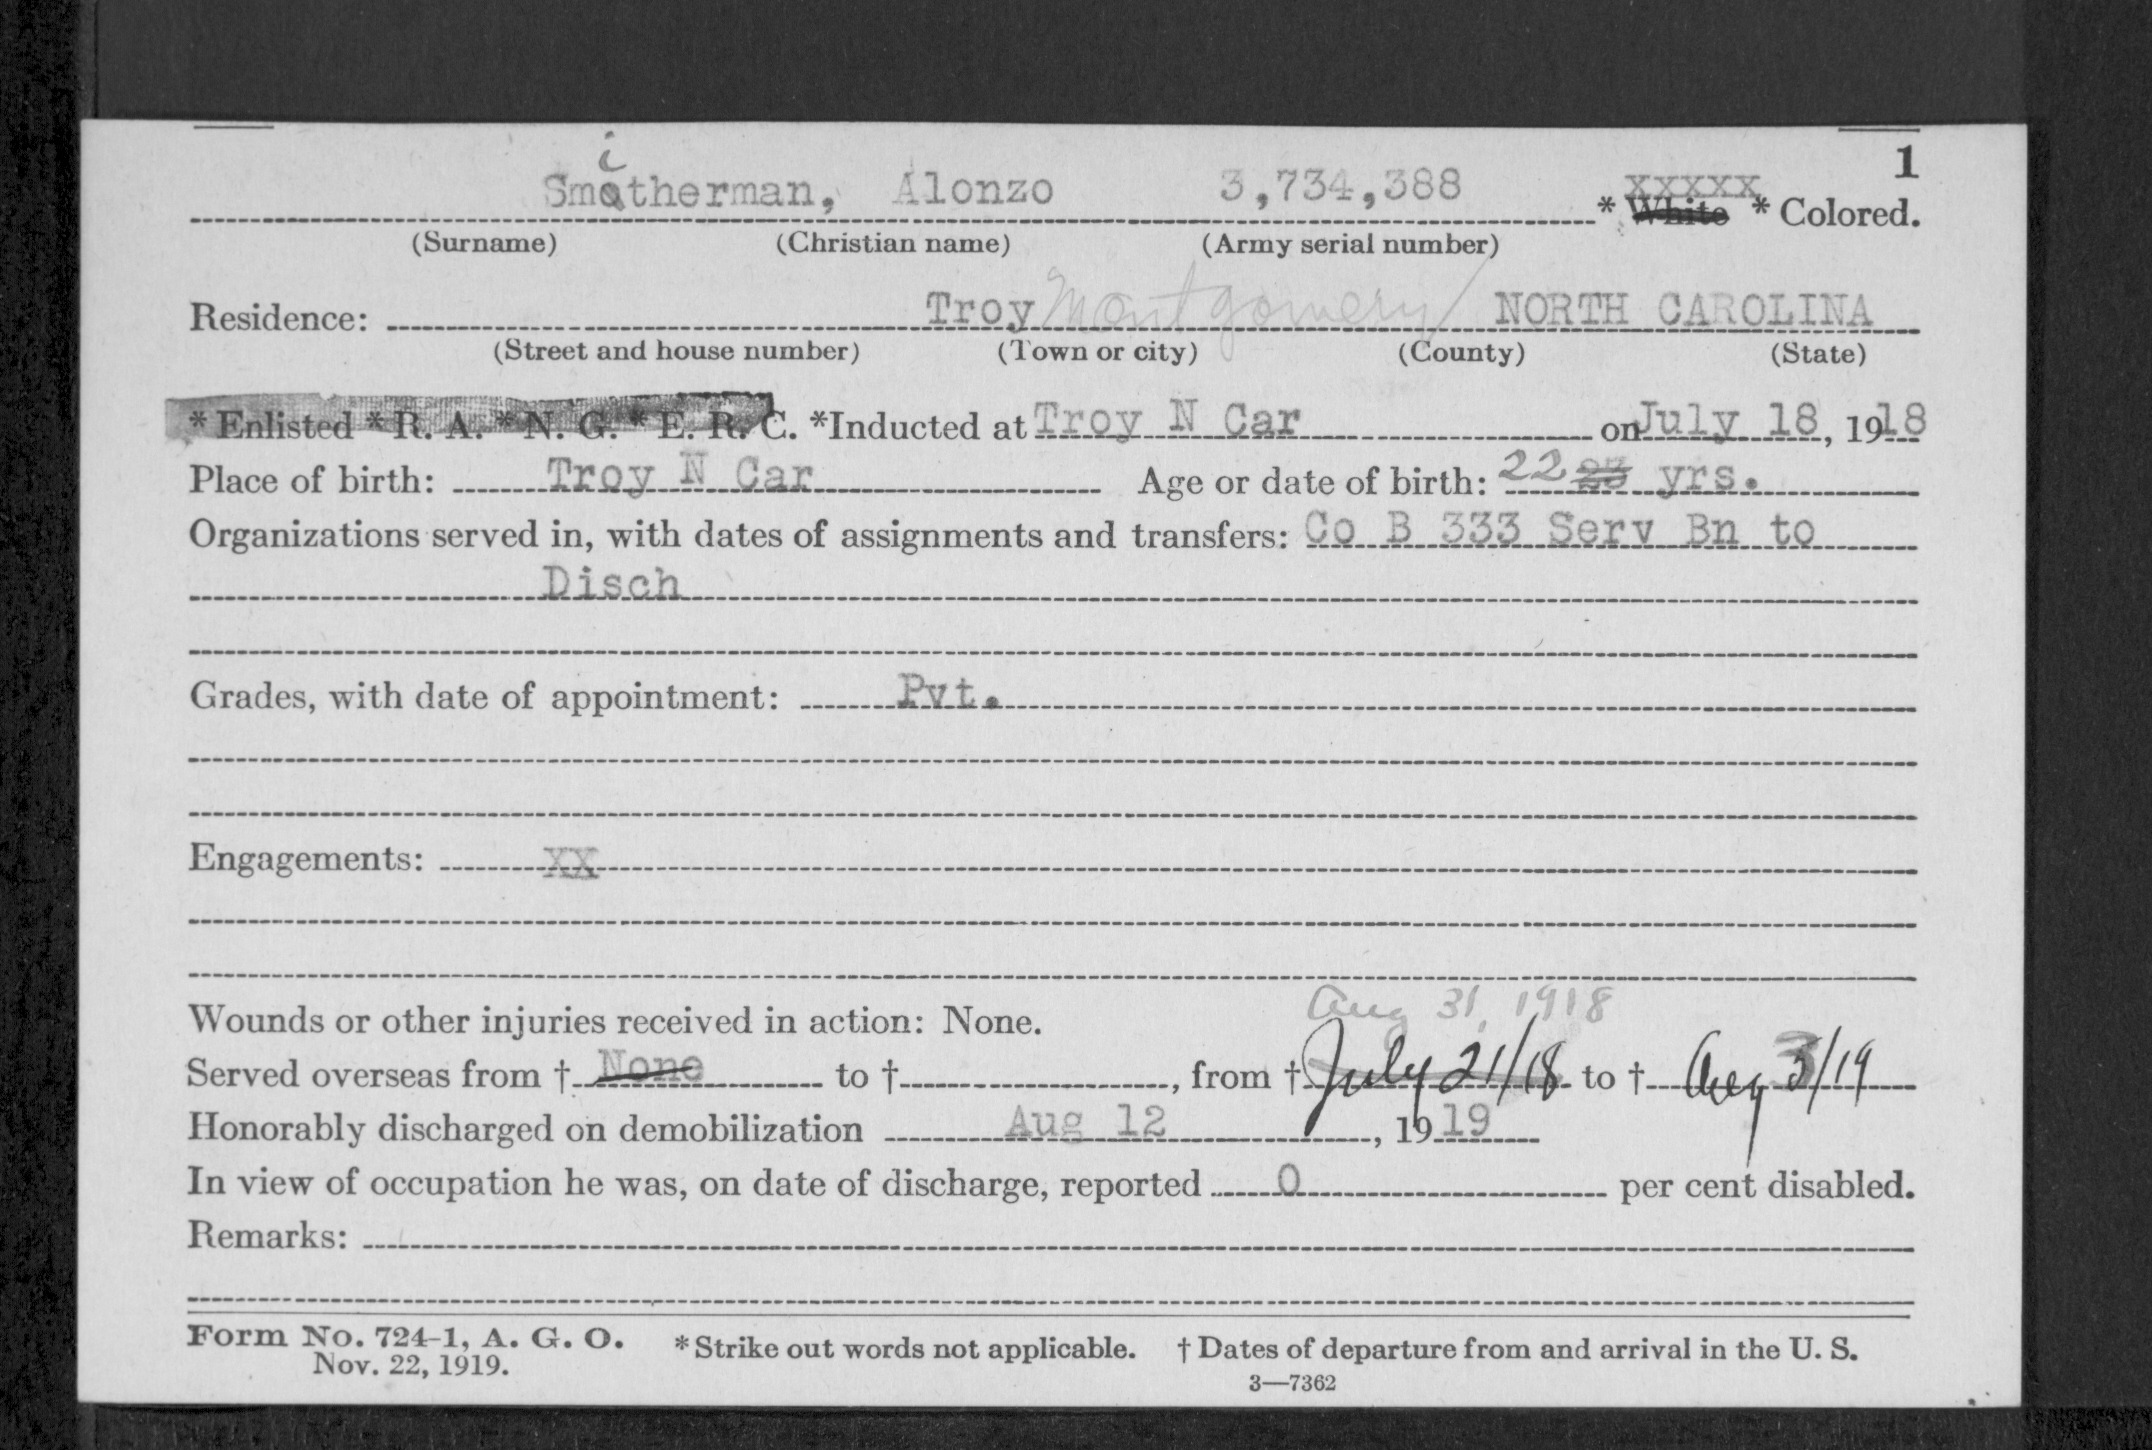 1
i
Smotherman, Alonzo 3,734,388 * White xxxxx * Colored.
(Surname) (Christian name) (Army serial number)
Residence: Troy Montgomery NORTH CAROLINA
(Street and house number) (Town or city) (County) (State)
* Enlisted * R. A. * N. G. * E. R. C. *Inducted at Troy N Car on July 18, 1918
Place of birth: Troy N Car Age or date of birth: 22 23 yrs.
Organizations served in, with dates of assignments and transfers: Co B 333 Serv Bn to
Disch
Grades, with date of appointment: Pvt.
Engagements: xx
Wounds or other injuries received in action: None.
Aug 31, 1918
Served overseas from † None to †, from † July 21/18 to † Aug 3/19
Honorably discharged on demobilization Aug 12, 1919
In view of occupation he was, on date of discharge, reported 0 per cent disabled.
Remarks:
Form No. 724-1, A. G. O. * Strike out words not applicable. † Dates of departure from and arrival in the U. S.
Nov. 22, 1919.
3—7362